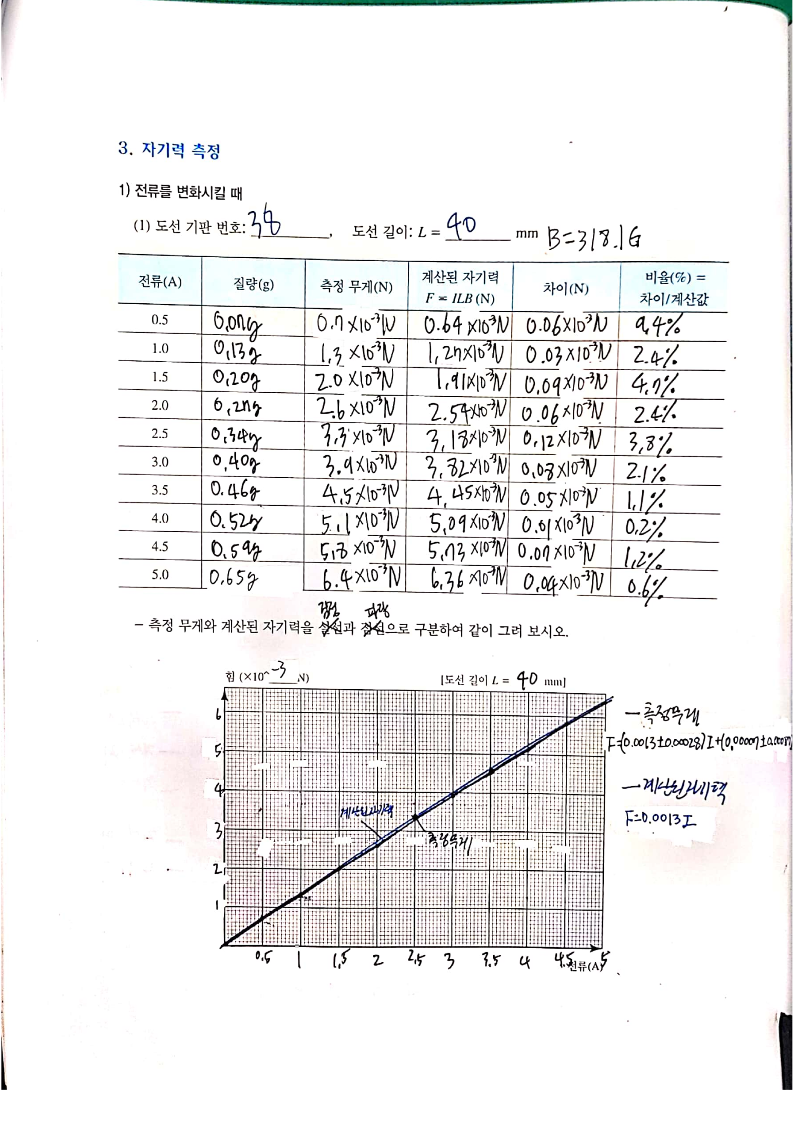 3. 자기력 측정
1) 전류를 변화시킬 때
(1) 도선 기판 번호: 38, 도선 길이: L = 40 mm B=318.1G
전류(A) 질량(g) 측정 무게(N) 계산된 자기력 F = ILB (N) 차이(N) 비율(%) = 차이/계산값
0.5 0.07g 0.7×10⁻³N 0.64×10⁻³N 0.06×10⁻³N 9.4%
1.0 0.13g 1.3×10⁻³N 1.27×10⁻³N 0.03×10⁻³N 2.4%
1.5 0.20g 2.0×10⁻³N 1.91×10⁻³N 0.09×10⁻³N 4.7%
2.0 0.27g 2.6×10⁻³N 2.54×10⁻³N 0.06×10⁻³N 2.4%
2.5 0.34g 3.3×10⁻³N 3.18×10⁻³N 0.12×10⁻³N 3.8%
3.0 0.40g 3.9×10⁻³N 3.82×10⁻³N 0.08×10⁻³N 2.1%
3.5 0.46g 4.5×10⁻³N 4.45×10⁻³N 0.05×10⁻³N 1.1%
4.0 0.52g 5.1×10⁻³N 5.09×10⁻³N 0.01×10⁻³N 0.2%
4.5 0.59g 5.8×10⁻³N 5.73×10⁻³N 0.07×10⁻³N 1.2%
5.0 0.65g 6.4×10⁻³N 6.36×10⁻³N 0.04×10⁻³N 0.6%
검정 파랑
– 측정 무게와 계산된 자기력을 실선과 점선으로 구분하여 같이 그려 보시오.
힘 (×10^-3 N) [도선 길이 L = 40 mm]
6
5
4
3
2
1
계산된자기력
측정무게
0.5 1 1.5 2 2.5 3 3.5 4 4.5 5
전류(A)
— 측정무게
F=(0.0013±0.00028)I+(0.00007±
— 계산된자기력
F=0.0013I